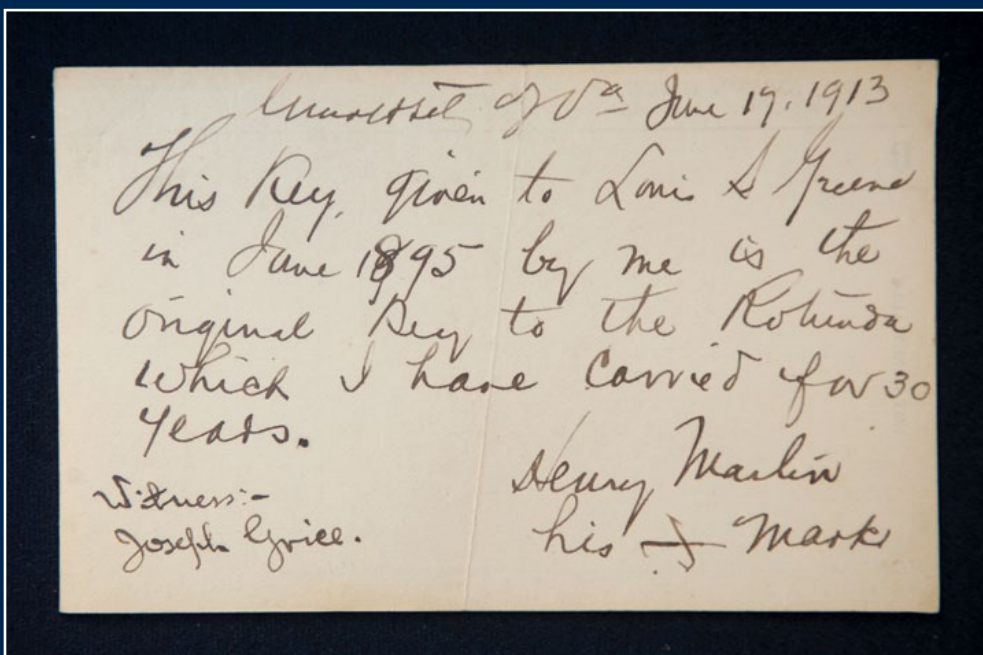 University of Va June 17. 1913
This Key, given to Louis S Greene
in June 1895 by me is the
original Key to the Rotunda
which I have carried for 30
years.
Henry Martin
his + Mark
Witness:-
Joseph Grice.